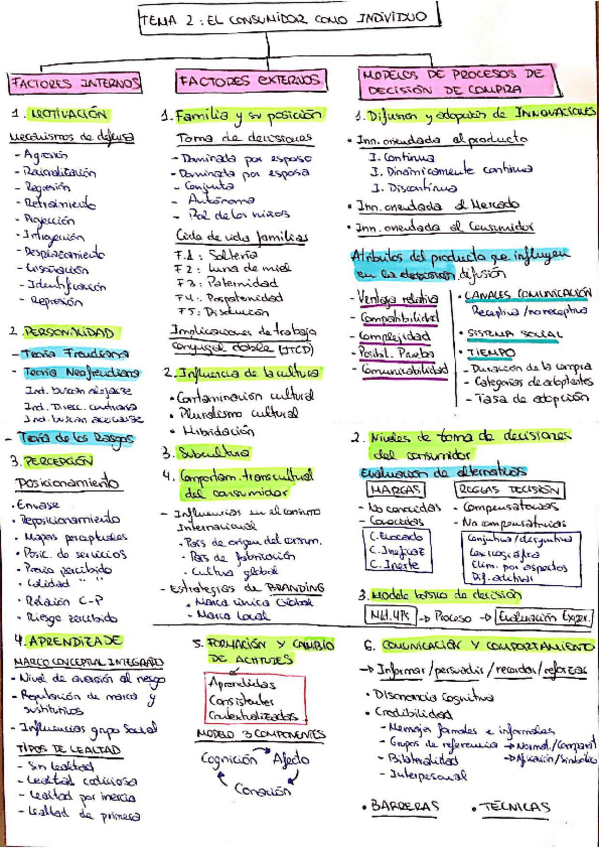 TEMA 2: EL CONSUMIDOR COMO INDIVIDUO
FACTORES INTERNOS
1. MOTIVACIÓN
Mecanismos de defensa
- Agresión
- Racionalización
- Regresión
- Retraimiento
- Proyección
- Introyección
- Desplazamiento
- Ensoñación
- Identificación
- Represión
2. PERSONALIDAD
- Teoría Freudiana
- Teoría Neofreudiana
Ind. buscan alejarse
Ind. Direcc. contraria
Ind. buscan acercarse
- Teoría de los Rasgos
3. PERCEPCIÓN
Posicionamiento
• Envase
• Reposicionamiento
• Mapas perceptuales
• Posic. de servicios
• Precio percibido
• Calidad " "
• Relación C-P
• Riesgo percibido
FACTORES EXTERNOS
1. Familia y su posición
Toma de decisiones
- Dominada por esposo
- Dominada por esposa
- Conjunta
- Autónoma
- Rol de los niños
Ciclo de vida familias
F.1 : Soltería
F 2 : Luna de miel
F 3 : Paternidad
F 4 : Pospaternidad
F 5 : Disolución
Implicaciones de trabajo
conyugal doble (JTCD)
2. Influencia de la cultura
• Contaminación cultural
• Pluralismo cultural
• Hibridación
3. Subcultura
4. Comportam. transcultural
del consumidor
- Influencias en el consumo
Internacional
• País de origen del consum.
• País de fabricación
• Cultura global
- Estrategias de BRANDING
• Marca única Global
• Marca Local
MODELOS DE PROCESOS DE
DECISIÓN DE COMPRA
1. Difusión y adopción de INNOVACIONES
• Inn. orientada al producto
I. Continua
I. Dinámicamente continua
I. Discontinua
• Inn. orientada al Mercado
• Inn. orientada al Consumidor
Atributos del producto que influyen
en la decisión difusión
- Ventaja relativa
- Compatibilidad
- Complejidad
- Posibil. Prueba
- Comunicabilidad
• CANALES COMUNICACIÓN
Receptiva / no receptiva
• SISTEMA SOCIAL
• TIEMPO
- Duración de la compra
- Categorías de adoptantes
- Tasa de adopción
2. Niveles de toma de decisiones
del consumidor
Evaluación de alternativas
MARCAS
- No conocidas
- Conocidas
C. Evocado
C. Ineficaz
C. Inerte
REGLAS DECISIÓN
- Compensatorias
- No compensatorias
Conjuntiva/disyuntiva
Lexicográfica
Elim. por aspectos
Dif. aditivas
3. Modelo básico de decisión
Mkt. 4Ps → Proceso → Evaluación Exper.
4. APRENDIZAJE
MARCO CONCEPTUAL INTEGRADO
- Nivel de aversión al riesgo
- Reputación de marca y
sustitutivos
- Influencias grupo Social
TIPOS DE LEALTAD
- Sin lealtad
- Lealtad codiciosa
- Lealtad por inercia
- Lealtad de primera
5. FORMACIÓN Y CAMBIO
DE ACTITUDES
Aprendidas
Consistentes
Contextualizadas
MODELO 3 COMPONENTES
Cognición → Afecto
Conación
6. COMUNICACIÓN Y COMPORTAMIENTO
→ Informar / persuadir / recordar / reforzar
• Disonancia Cognitiva
• Credibilidad
- Mensajes formales e informales
- Grupos de referencia → Normat./Comparat
- Bilateralidad → Afiliación/Simbólico
- Interpersonal
• BARRERAS • TÉCNICAS